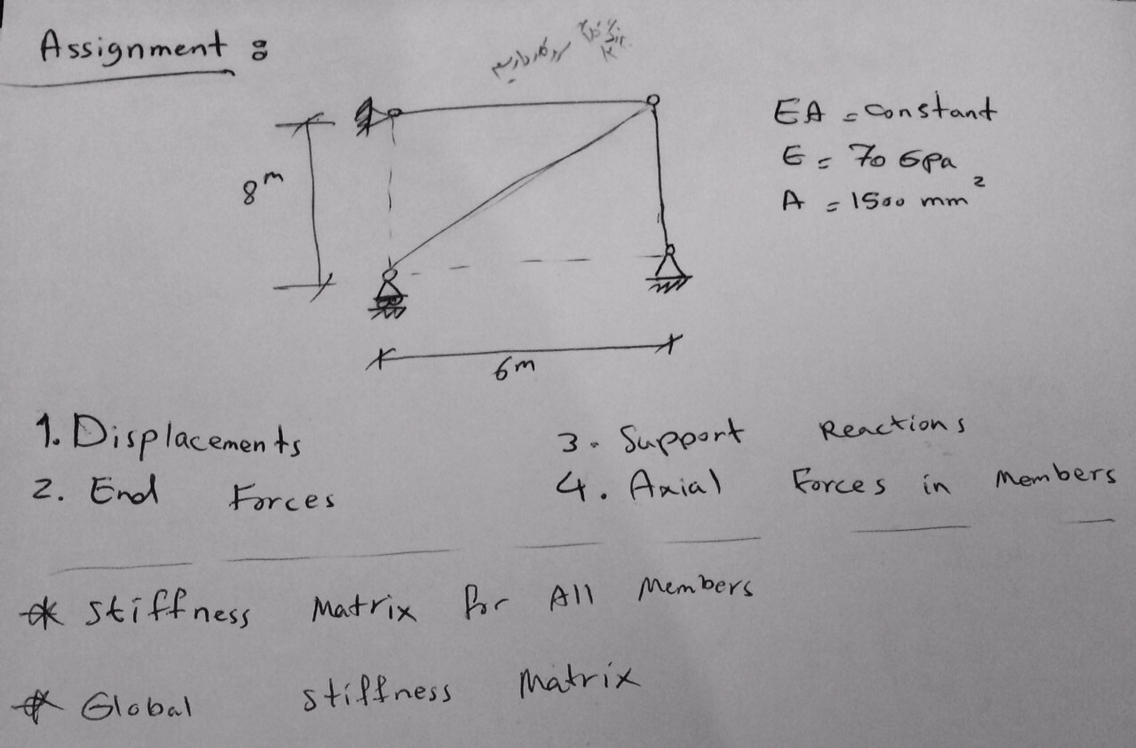 Assignment :
EA = constant
E = 70 Gpa
A = 1500 mm²
8m
6m
1. Displacements
2. End Forces
3. Support Reactions
4. Axial Forces in Members
* Stiffness Matrix for All Members
* Global Stiffness Matrix